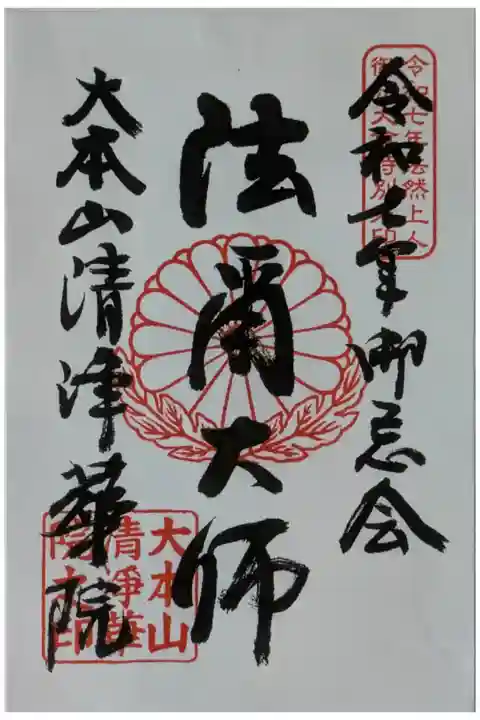 令和七年法然上人
御忌大会特別朱印
令和七年御忌会
法爾大師
大本山清浄華院
大本山
清浄華
院之印